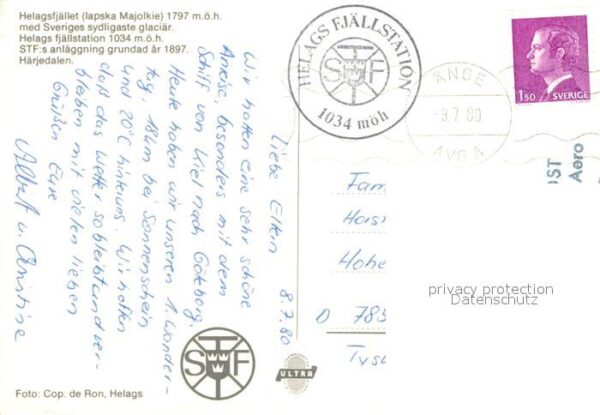 Helagsfjället (lapska Majolkie) 1797 m.ö.h.
med Sveriges sydligaste glaciär.
Helags fjällstation 1034 m.ö.h.
STF:s anläggning grundad år 1897.
Härjedalen.
HELAGS FJÄLLSTATION
STF
1034 möh
ÅNGE
-9.7.80
AVG A
1.50 SVERIGE
ST
Aero
8.7.80
Liebe Eltern
Wir hatten eine sehr schöne
Anreise, besonders mit dem
Schiff von Kiel nach Göteborg.
Heute haben wir unseren 1. Wander-
tag, 18 km bei Sonnenschein
und 20°C hinter uns. Wir hoffen
daß das Wetter so bleibt und ver-
bleiben mit vielen lieben
Grüßen Eure
Albert u. Christine
Fam
Hors
Hohe
D 783
Tysk
privacy protection
Datenschutz
STF
ULTRA
Foto: Cop. de Ron, Helags